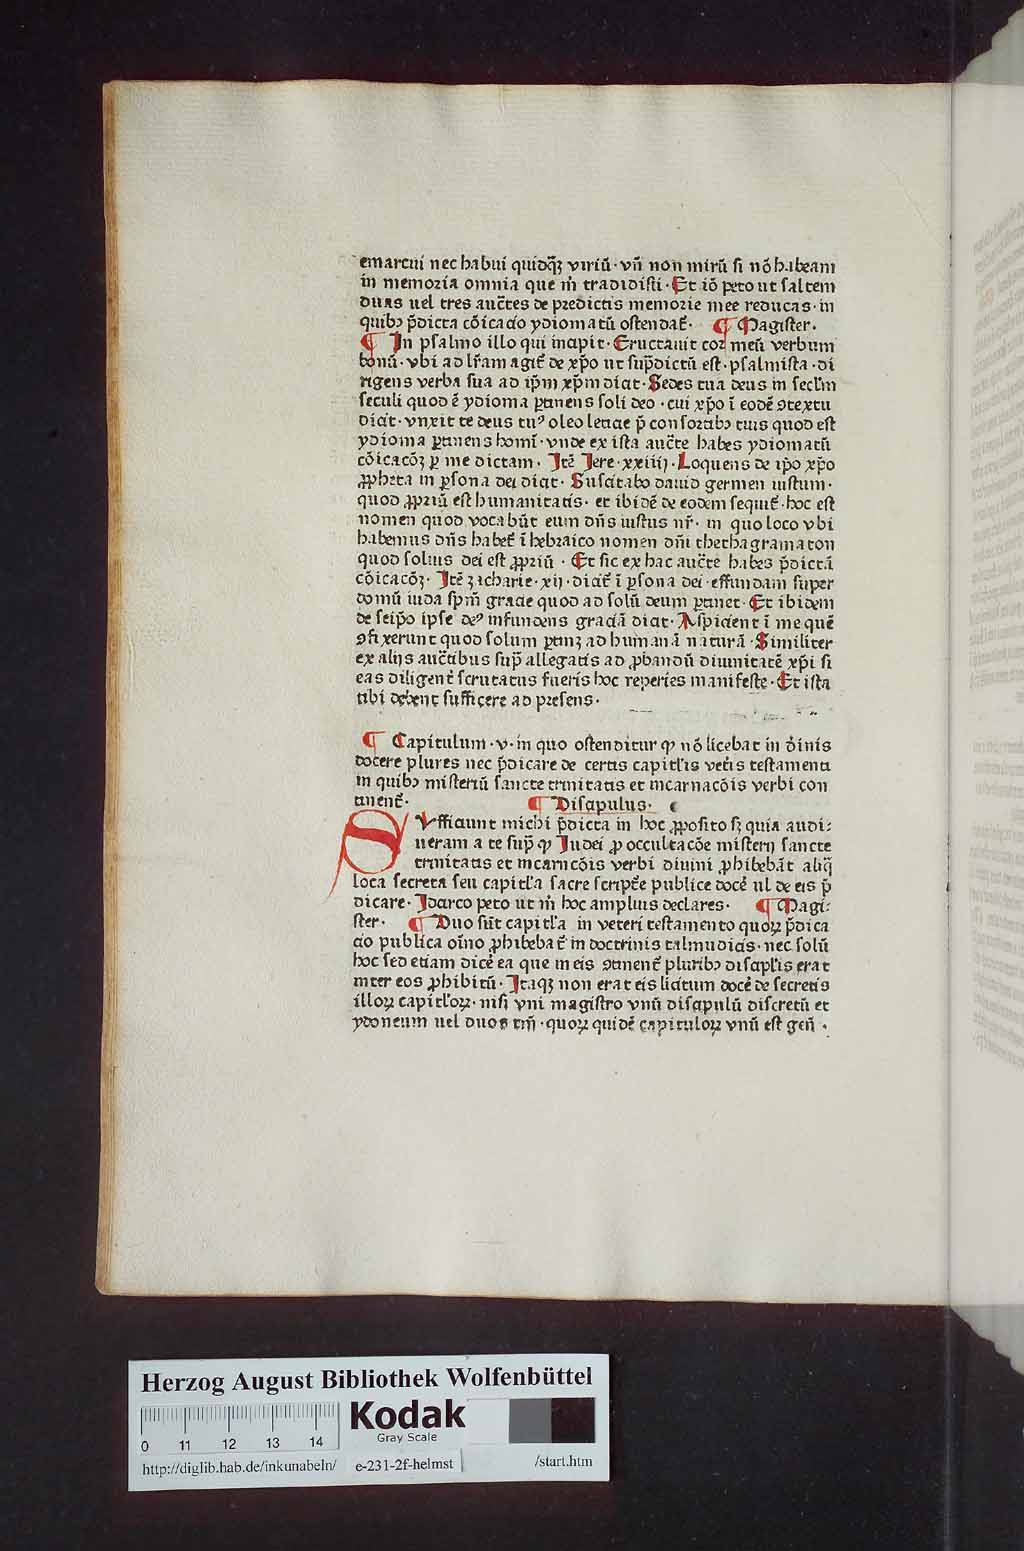 emarcui nec habui quidqꝫ viriū · vn̄ non mirū si nō habeam
in memoria omnia que m̄ tradidisti · Et iō peto ut saltem
duas uel tres auct̄es de predictis memorie mee reducas · in
quibꝰ p̄dicta cōicacio ydiomatū ostendat᷑ · ¶ Magister ·
¶ In psalmo illo qui incipit · Eructauit cor meū verbum
bonū · vbi ad lr̄am agit᷑ de xp̄o ut sup̄dictū est · psalmista · di
rigens verba sua ad ip̄m xp̄m dicit · Sedes tua deus in secl̄m
seculi quod ē ydioma ꝑtinens soli deo · cui xp̄o ī eodē ꝯtextu
dicit · vnxit te deus tuꝰ oleo leticie p̄ consortibꝰ tuis quod est
ydioma ꝑtinens homī · vnde ex ista auct̄e habes ydiomatū
cōicacōꝫ ꝑ me dictam · Itē Jere · xxiiij · Loquens de ip̄o xp̄o
ꝓpheta in ꝑsona dei dicit · Suscitabo dauid germen iustum ·
quod ꝓpriū est humanitatis · et ibidē de eodem sequit᷑ · hoc est
nomen quod vocabūt eum dn̄s iustus nr̄ · in quo loco vbi
habemus dn̄s habet᷑ ī hebraico nomen dn̄i thethagramaton
quod solius dei est ꝓpriū · Et sic ex hac auct̄e habes p̄dictā
cōicacōꝫ · Itē zacharie · xij · dicit᷑ ī ꝑsona dei · effundam super
domū iuda spm̄ gracie quod ad solū deum ꝑtinet · Et ibidem
de seip̄o ipse deꝰ infundens graciā dicit · Aspicient ī me quē
ꝯfixerunt quod solum ꝑtinꝫ ad humanā naturā · Similiter
ex alijs auct̄ibus sup̄ allegatis ad ꝓbandū diuinitatē xp̄i si
eas diligent᷑ scrutatus fueris hoc reperies manifeste · Et ista
tibi debent sufficere ad presens ·
¶ Capitulum · v · in quo ostenditur ꝙ nō licebat in
docere plures nec p̄dicare de certis capitl̄is vet̄is testamenti
in quibꝰ misteriū sancte trinitatis et incarnacōis verbi con
tinent᷑ · ¶ Discipulus ·
SVfficiunt michi p̄dicta in hoc ꝓposito sꝫ quia audi⸗
ueram a te sup̄ ꝙ Judei ꝓ occultacōe misterij sancte
trinitatis et incarnacōis verbi diuini ꝓhibebāt aliq̄
loca secreta seu capitl̄a sacre script̄e publice docē ul de eis p̄
dicare · Idcirco peto ut m̄ hoc amplius declares · ¶ Magi⸗
ster · ¶ Duo sūt capitl̄a in veteri testamento quoꝝ p̄dica
cio publica oīno ꝓhibebat᷑ in doctrinis talmudicis · nec solū
hoc sed etiam dicē ea que in eis ꝯtinent᷑ pluribꝰ discipl̄is erat
inter eos ꝓhibitū · Itaqꝫ non erat eis licitum docē de secretis
illoꝝ capitl̄oꝝ · nisi vni magistro vnū discipulū discretū et
ydoneum uel duos tm̄ · quoꝝ quidē capituloꝝ vnū est gen̄ ·
Herzog August Bibliothek Wolfenbüttel
Kodak
Gray Scale
0 11 12 13 14
http://diglib.hab.de/inkunabeln/ e-231-2f-helmst /start.htm